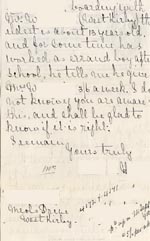 boarding with
Mr. W (West Kirby) the
eldest is about 13 years old
and for some time has
worked as errand boy after
school, he tells me he gives
Mr W 3/6 a week. I do
not know if you are aware of
this, and shall be glad to
know if it is right.
I remain
Yours truly
Meols Drive
West Kirby